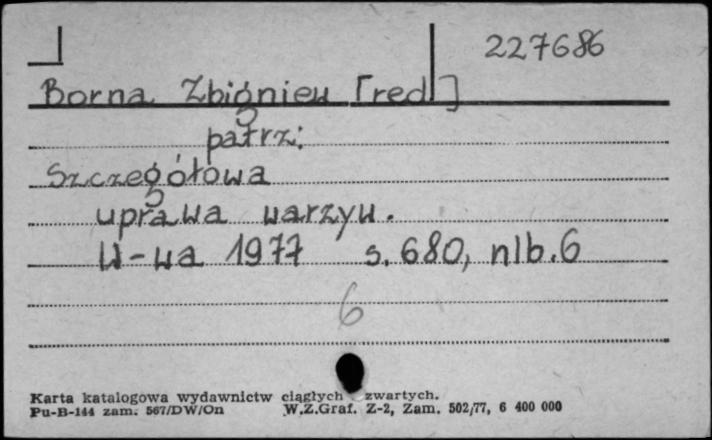 227686
Borna Zbigniew [red]
patrz:
Szczegółowa
uprawa warzyw.
W-wa 1977 s. 680, nlb. 6
6
Karta katalogowa wydawnictw ciągłych zwartych.
Pu-B-144 zam. 567/DW/On W.Z.Graf. Z-2, Zam. 502/77, 6 400 000